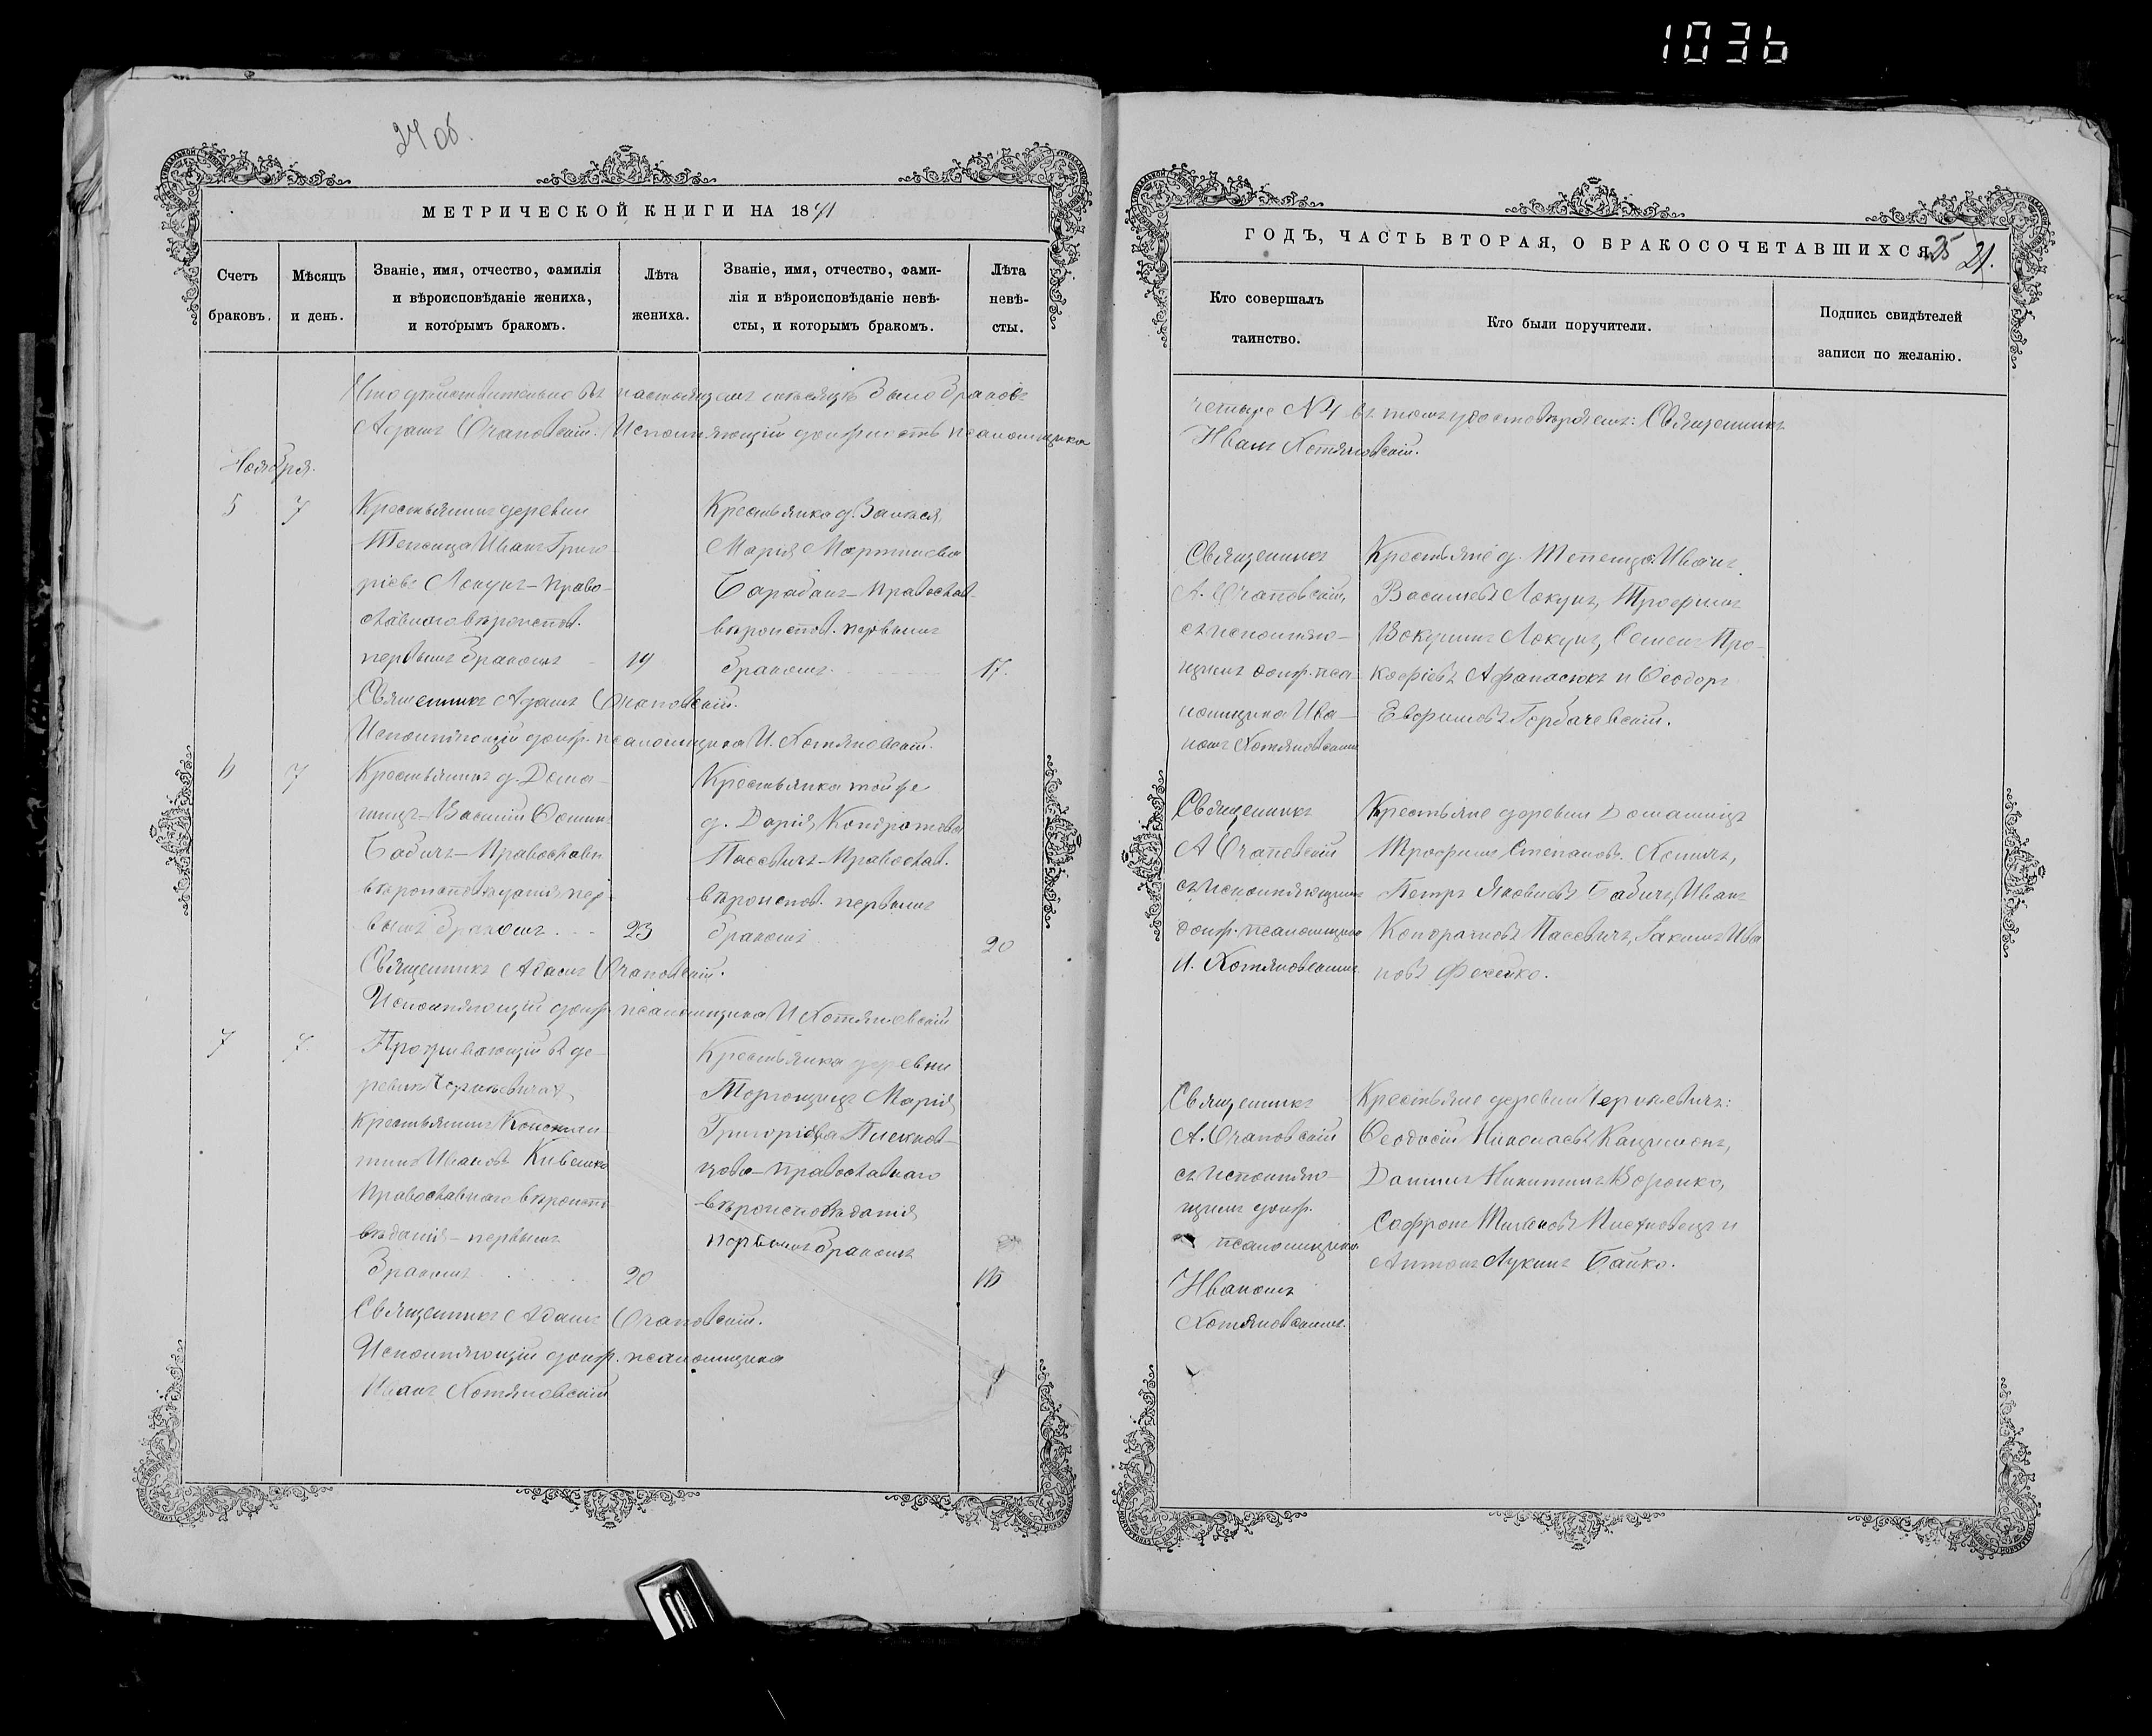 1036
24 об.
МЕТРИЧЕСКОЙ КНИГИ НА 1871
Счетъ браковъ.
Мѣсяцъ и день.
Званіе, имя, отчество, фамилія
и вѣроисповѣданіе жениха,
и которымъ бракомъ.
Лѣта
жениха.
Званіе, имя, отчество, фами-
лія и вѣроисповѣданіе невѣ-
сты, и которымъ бракомъ.
Лѣта
невѣ-
сты.
Что действительно въ настоящемъ мѣсяцѣ было браковъ
Адамъ Очаповскій. Исполняющій должность псаломщика
Ноября.
5
7
Крестьянинъ деревни
Иванъ Григо-
рiевъ Локунъ – право-
славнаго вѣроиспов.
первымъ бракомъ
19
Крестьянка д.
Марія Мартинова
Барабанъ – православ.
вѣроиспов. первымъ
бракомъ.
17.
Священникъ Адамъ Очаповскій.
Исполняющій долж. псаломщика И. Котяновскій.
6
7
Крестьянинъ д. Дома-
шицъ – Василій Ѳоминъ
Бабичъ – православн.
вѣроисповѣданія пер-
вымъ бракомъ
23
Крестьянка той же
д. Дарія Кондратова
Пасевичъ – православ.
вѣроиспов. первымъ
бракомъ
20
Священникъ Адамъ Очаповскій.
Исполняющій долж. псаломщика И Котяновскій
7
7.
Проживающій въ де-
ревнѣ
крестьянинъ Констан-
тинъ Ивановъ
православнаго вѣроиспо-
вѣданія – первымъ
бракомъ
20
Крестьянка деревни
Марія
Григоріева
православнаго
вѣроисповѣданія
первымъ бракомъ
16
Священникъ Адамъ Очаповскій.
Исполняющій долж. псаломщика
Иванъ Котяновскій
ГОДЪ, ЧАСТЬ ВТОРАЯ, О БРАКОСОЧЕТАВШИХСЯ.
25
21.
Кто совершалъ
таинство.
Кто были поручители.
Подпись свидѣтелей
записи по желанію.
четыре №4 въ томъ удостовѣряемъ: Священникъ
Иванъ Котяновскій.
Священникъ
А. Очаповскій,
съ исполняю-
щимъ долж. пса-
ломщика Ива-
номъ Котяновскимъ
Крестьяне д. Иванъ
Васильевъ Локунъ, Трофимъ
Локунъ, Семенъ Про-
кофіевъ Афанасюкъ и Ѳеодоръ
Евфимовъ Горбачевскій.
Священникъ
А Очаповскій
съ исполняющимъ
долж. псаломщика
И. Котяновскимъ.
Крестьяне деревни Домашицъ
Трофимъ Степановъ
Петръ Яковлевъ Бабичъ, Иванъ
Кондратовъ Пасевичъ, Іакимъ Ива
новъ
Священникъ
А. Очаповскій
съ исполняю-
щимъ долж.
псаломщика
Иваномъ
Котяновскимъ.
Крестьяне деревни
Ѳеодосій Николаевъ
Даніилъ Никитинъ
Софронъ и
Антонъ Лукинъ Байко.